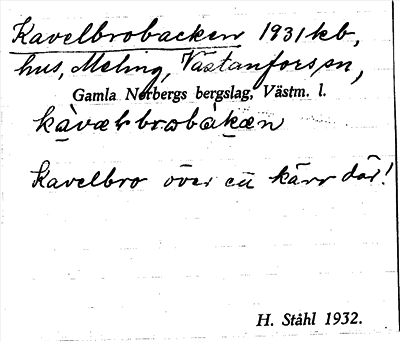 Kavelbrobacken 1931 kb,
hus, Meling, Västanfors sn,
Gamla Norbergs bergslag, Västm. l.
kàvæł brobákæn
Kavelbro över ett kärr där!
H. Ståhl 1932.